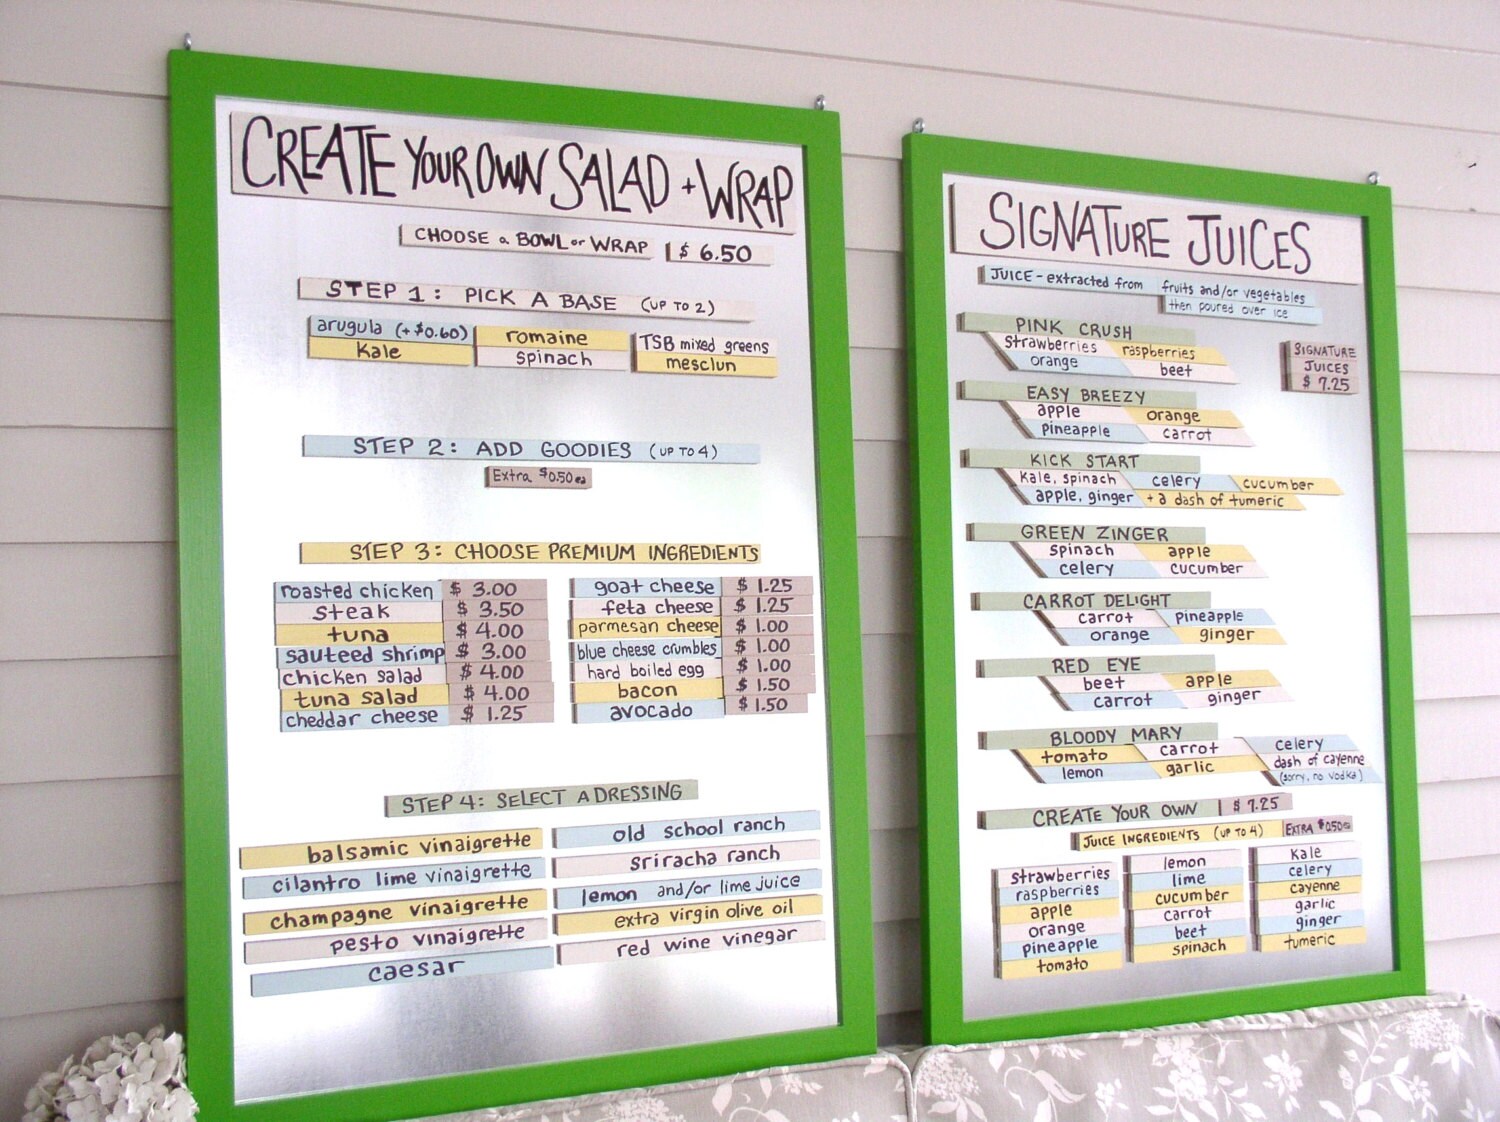 CREATE YOUR OWN SALAD + WRAP
CHOOSE a BOWL or WRAP $ 6.50
STEP 1: PICK A BASE (UP TO 2)
arugula (+$0.60) romaine TSB mixed greens
Kale spinach mesclun
STEP 2: ADD GOODIES (UP TO 4)
Extra $0.50 ea
STEP 3: CHOOSE PREMIUM INGREDIENTS
roasted chicken $ 3.00
steak $ 3.50
tuna $ 4.00
sauteed shrimp $ 3.00
chicken salad $ 4.00
tuna salad $ 4.00
cheddar cheese $ 1.25
goat cheese $ 1.25
feta cheese $ 1.25
parmesan cheese $ 1.00
blue cheese crumbles $ 1.00
hard boiled egg $ 1.00
bacon $ 1.50
avocado $ 1.50
STEP 4: SELECT A DRESSING
balsamic vinaigrette
cilantro lime vinaigrette
champagne vinaigrette
pesto vinaigrette
caesar
old school ranch
sriracha ranch
lemon and/or lime juice
extra virgin olive oil
red wine vinegar
SIGNATURE JUICES
JUICE - extracted from fruits and/or vegetables
then poured over ice
SIGNATURE
JUICES
$ 7.25
PINK CRUSH
strawberries raspberries
orange beet
EASY BREEZY
apple orange
pineapple carrot
KICK START
Kale, spinach celery cucumber
apple, ginger + a dash of tumeric
GREEN ZINGER
spinach apple
celery cucumber
CARROT DELIGHT
carrot pineapple
orange ginger
RED EYE
beet apple
carrot ginger
BLOODY MARY
tomato carrot celery
lemon garlic dash of cayenne
(sorry, no vodka)
CREATE YOUR OWN $ 7.25
JUICE INGREDIENTS (UP TO 4) EXTRA $0.50 ea
strawberries
raspberries
apple
orange
pineapple
tomato
lemon
lime
cucumber
carrot
beet
spinach
Kale
celery
cayenne
garlic
ginger
tumeric